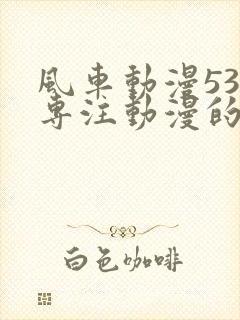 風車動漫53
專注動漫的
白色咖啡